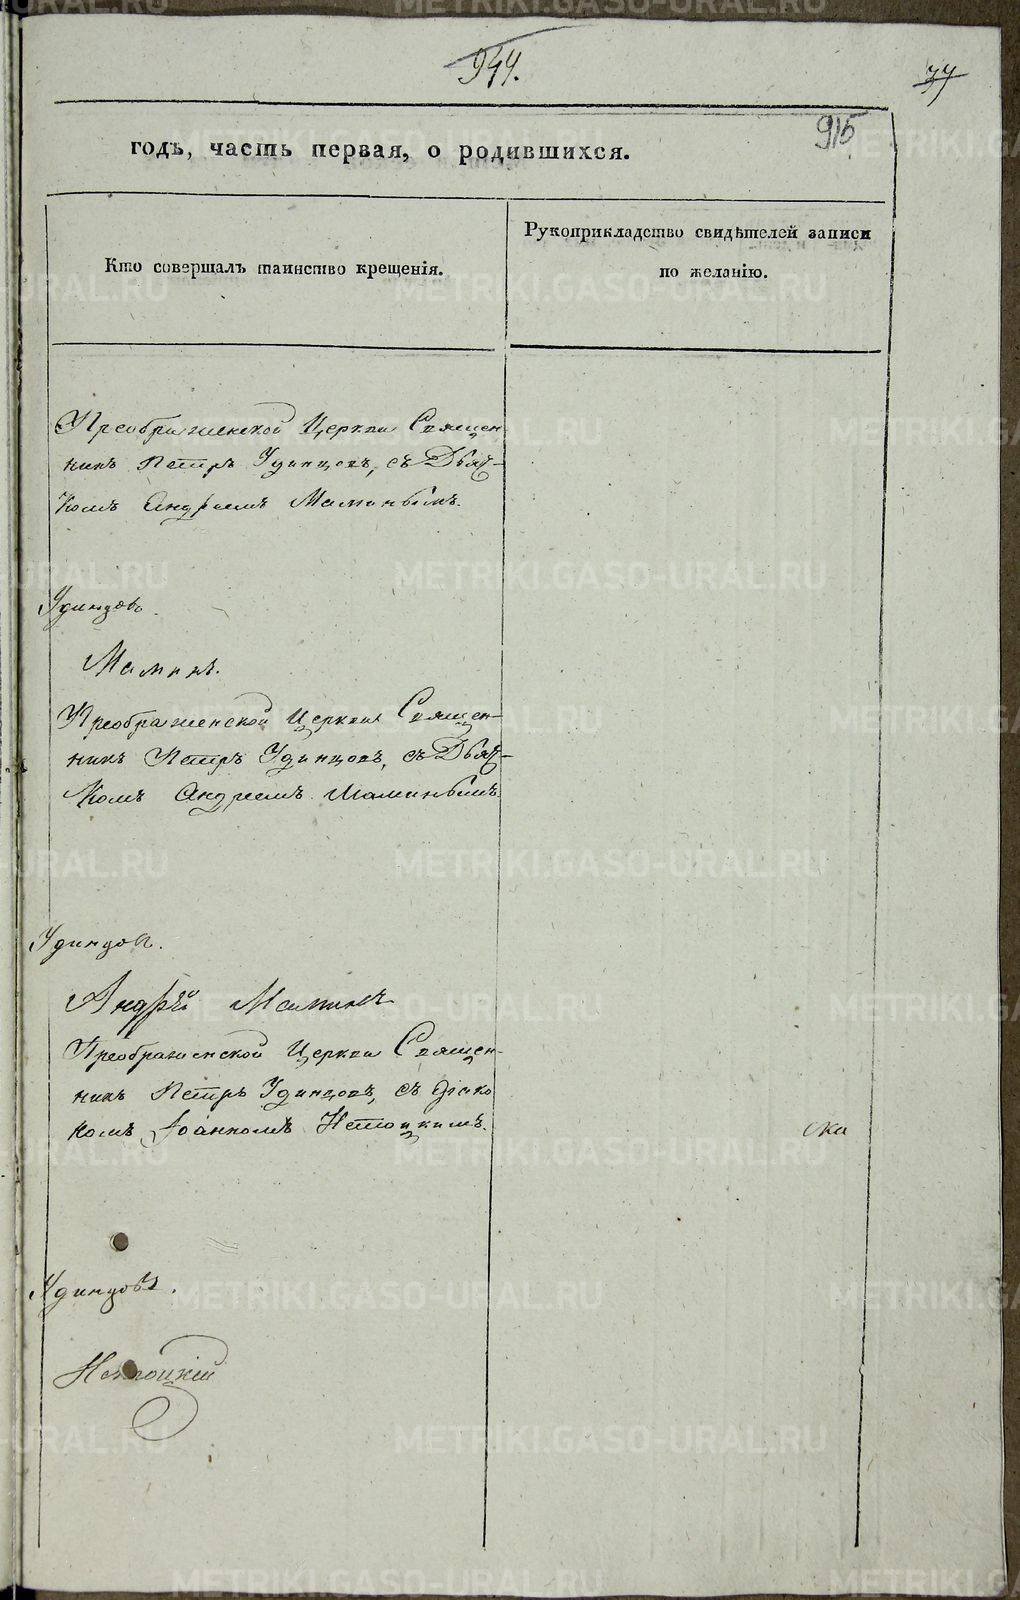 944.
37
915
годъ, часть первая, о родившихся.
Кто совершалъ таинство крещенія.
Рукоприкладство свидѣтелей записи
по желанію.
Преображенской Церкви Священ
никъ Петръ Удинцовъ, съ Дьяч-
комъ Андреемъ Маминымъ.
Удинцовъ.
Маминъ.
Преображенской Церкви Священ-
никъ Петръ Удинцовъ, съ Дьяч-
комъ Андреемъ Маминымъ.
Удинцовъ.
Андрѣй Маминъ
Преображенской Церкви Священ-
никъ Петръ Удинцовъ, съ діако
комъ Іоанномъ
Удинцовъ.
METRIKI.GASO-URAL.RU